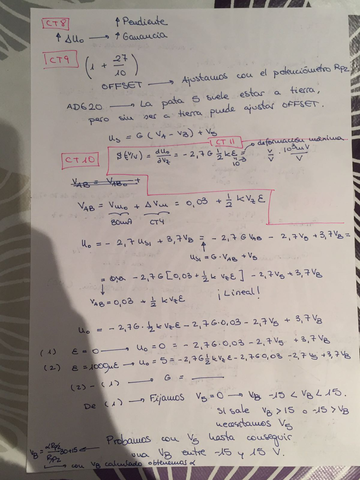 CT8
↑ Δu₀ → ↑ Pendiente
↑ Ganancia
CT9
(1 + 27/10)
OFFSET → Ajustamos con el potenciómetro Rp2
AD620 → La pata 5 suele estar a tierra,
pero sin ser a tierra puede ajustar OFFSET.
u₀ = G (VA - VB) + V5
CT.11
CT.10
deformación máxima
VAB = Vm₀ + ΔVm = 0,03 + 1/2 k V2 ε
30mV CT4
u₀ = -2,7 us1 + 3,7 VB = -2,7 G VAB - 2,7 V5 + 3,7 VB =
us1 = G·VAB + V5
-2,7 G [0,03 + 1/2 k V2 ε] - 2,7 V5 + 3,7 VB
VAB = 0,03 + 1/2 k V2 ε
¡Lineal!
u₀ = -2,7 G·1/2 k V2 ε - 2,7 G·0,03 - 2,7 V5 + 3,7 VB
(1) ε = 0 → u₀ = 0 = -2,7 G·0,03 - 2,7 V5 + 3,7 VB
(2) ε = 1000με → u₀ = 5 = -2,7 G 1/2 k V2 ε - 2,7 G 0,03 - 2,7 V5 + 3,7 VB
(2) - (1) → G =
De (1) → Fijamos V5 = 0 → VB -15 < VB < 15.
Si sale VB > 15 o -15 > VB
necesitamos V5
Probamos con V5 hasta conseguir
una VB entre -15 y 15 V.
con VB calculado obtenemos α